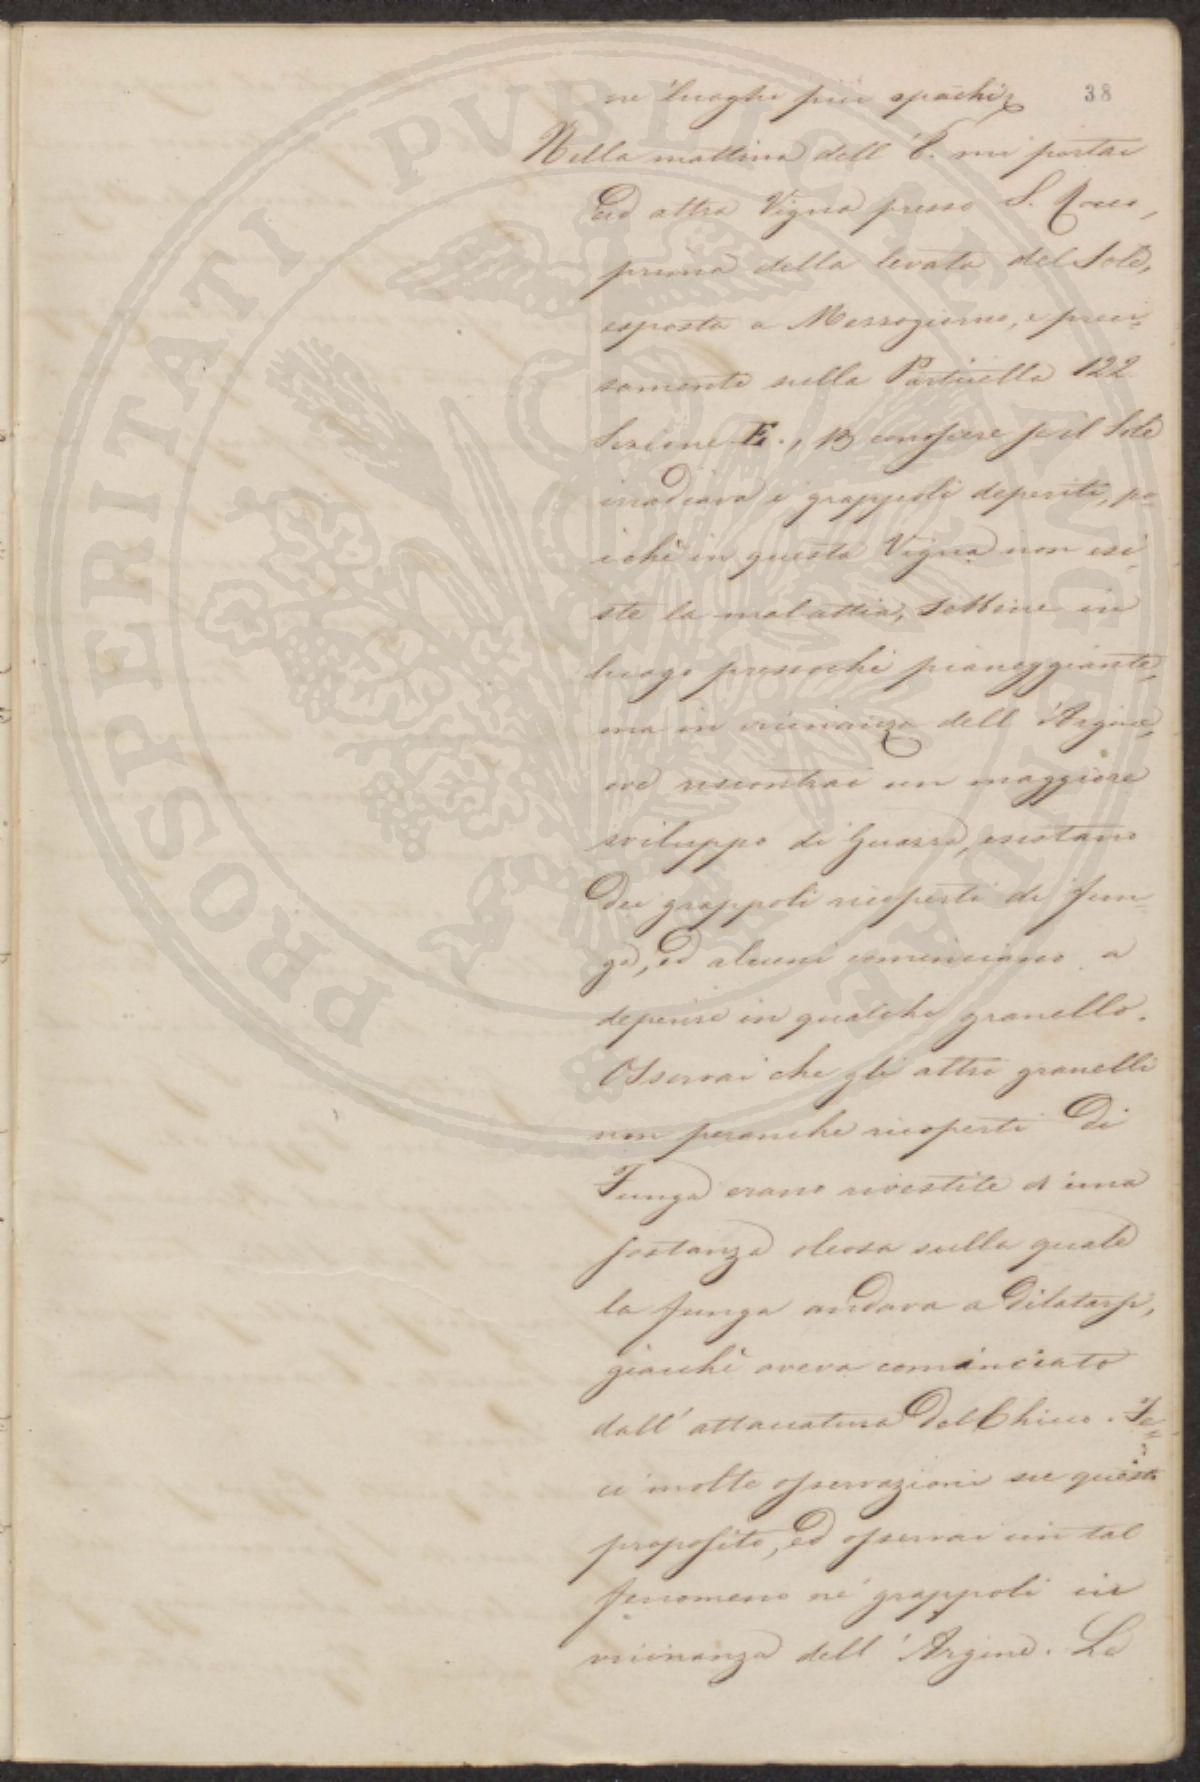 ne' luoghi più opachi
38
Nella mattina dell' 8. mi portai
ad altra Vigna presso S. Rocco,
prima della levata del Sole,
esposta a Mezzogiorno, e preci-
samente sulla Particella 122
Sezione E., conoscere se il Sole
irradiava i grappoli deperiti, po-
ichè in questa Vigna non esi-
ste la malattia, sebbene in
luogo pressochè pianeggiante,
ma in vicinanza dell' Argine,
ove riscontrai un maggiore
sviluppo di Guazza, esistano
dei grappoli ricoperti di Fun-
ga, ed alcuni cominciano a
deperire in qualche granello.
Osservai che gli altri granelli
non peranche ricoperti di
Funga erano rivestite d'una
sostanza oleosa sulla quale
la funga andava a dilatarsi,
giacchè aveva cominciato
dall' attaccatura del Chicco. Fe-
ci molte osservazioni su questo
proposito, ed osservai un tal
fenomeno ne' grappoli in
vicinanza dell' Argine. Le
PROSPERITATI PVBLICAE AVGENDAE